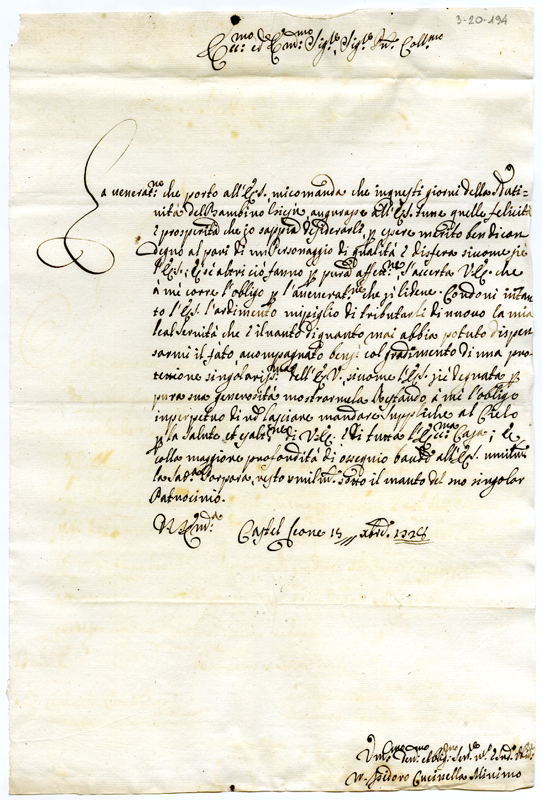 3-20-194
Ecc.mo ed Em.mo Sig.re, Sig.re Pne. Coll.mo
La venerat.ne che porto all'E.V. mi comanda che in questi giorni della Nati=
vità del Bambino augurasse all'E.V. tutte quelle felicità
e prosperità che io sappia desiderarli, p essere merito ben di con
degno al pari di un Personaggio di qualità e di sfera sicome
l'E.V. E se altri ciò fanno p pura affett.ne, l'accerto V.E. che
à mè corre l'obligo p l'annerat.ne che si li deve. Condoni intan
to l'E.V. l'ardimento mi piglio di tributarli di nuovo la mia
leal servitù che è il vanto di quanto mai abbia potuto dispen
sarmi il fato accompagnato bensi col gradimento di una pro=
tettione singolariss.ma dell'E.V. sicome l'E.V. si è degnata p
pura sua generosità mostrarmela restando à mè l'obligo
in perpetuo di nò lasciare mandare suppliche al Cielo
p la salute, et esalt.ne di V.E. e di tutta l'Ecc.ma Casa; e
colla maggiore profondità di ossequio baciando all'E.V. umilm.te
la Sac.a Porpora, resto umilm.te sotto il manto del suo singolar
Patrocinio.
Di V. Em.za Castel Leone 15 Xbre
Um.mo Dev.mo et Obl.mo Ser.re
Isidoro Cucinella Minimo